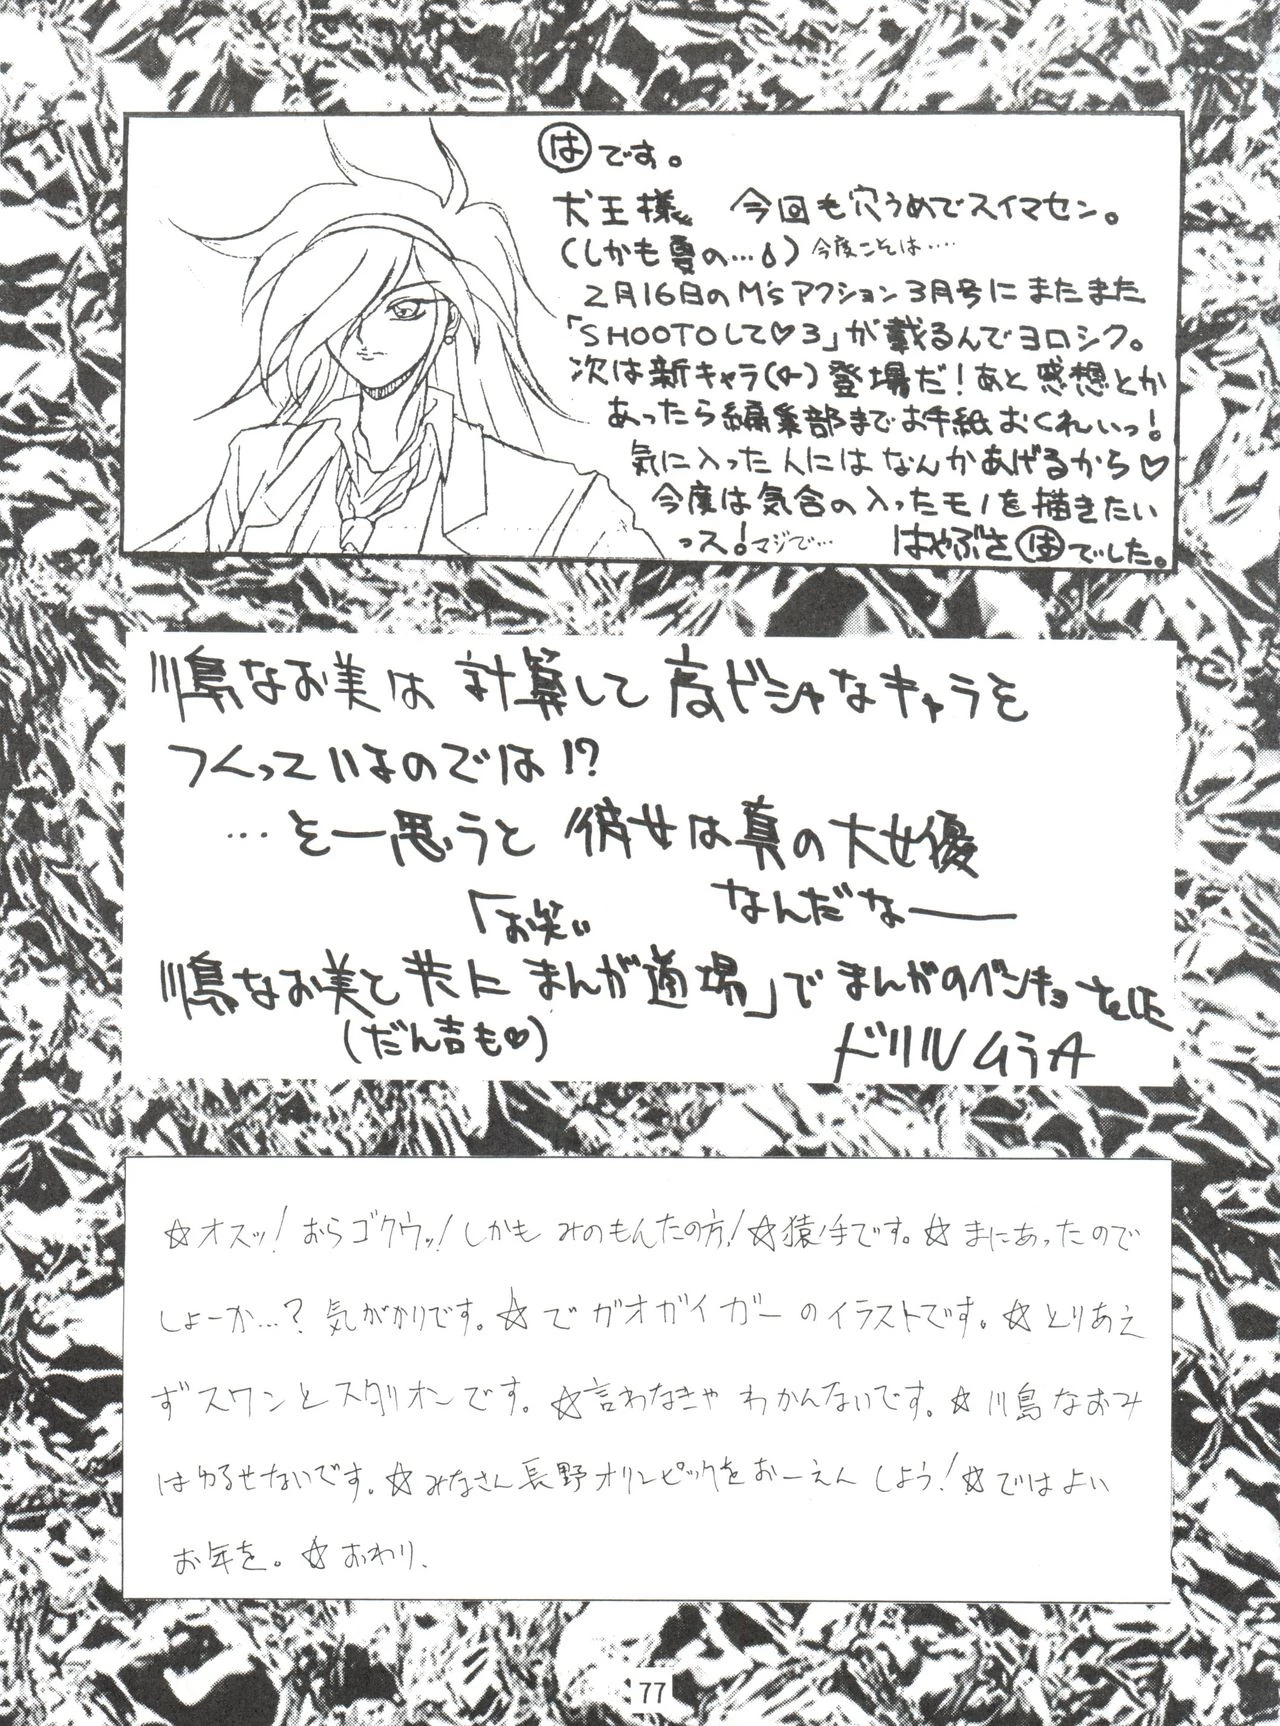 はです。
犬王様 今回も穴うめでスイマセン。
(しかも夏の…) 今度こそは‥‥
2月16日のM'sアクション3月号にまたまた
「SHOOTOして♡3」が載るんでヨロシク。
次は新キャラ(♀)登場だ!あと感想とか
あったら編集部までお手紙おくれいっ!
気に入った人にはなんかあげるから♡
今度は気合の入ったモノを描きたい
っス!マジで… はやぶさはでした。
川島なお美は計算して高ビシャなキャラを
つくっているのでは!?
…と一思うと彼女は真の大女優
なんだなー
「お笑い
川島なお美と共に まんが道場」でまんがのベンキョをした
(だん吉も♡)
ドリルムラA
☆オスッ!おらゴクウッ!しかもみのもんたの方!☆猿ノ手です。☆まにあったので
しょーか…?気がかりです。☆でガオガイガーのイラストです。☆とりあえ
ずスワンとスタリオンです。☆言わなきゃわかんないです。☆川島なおみ
はゆるせないです。☆みなさん長野オリンピックをおーえんしよう!☆ではよい
お年を。☆おわり.
77